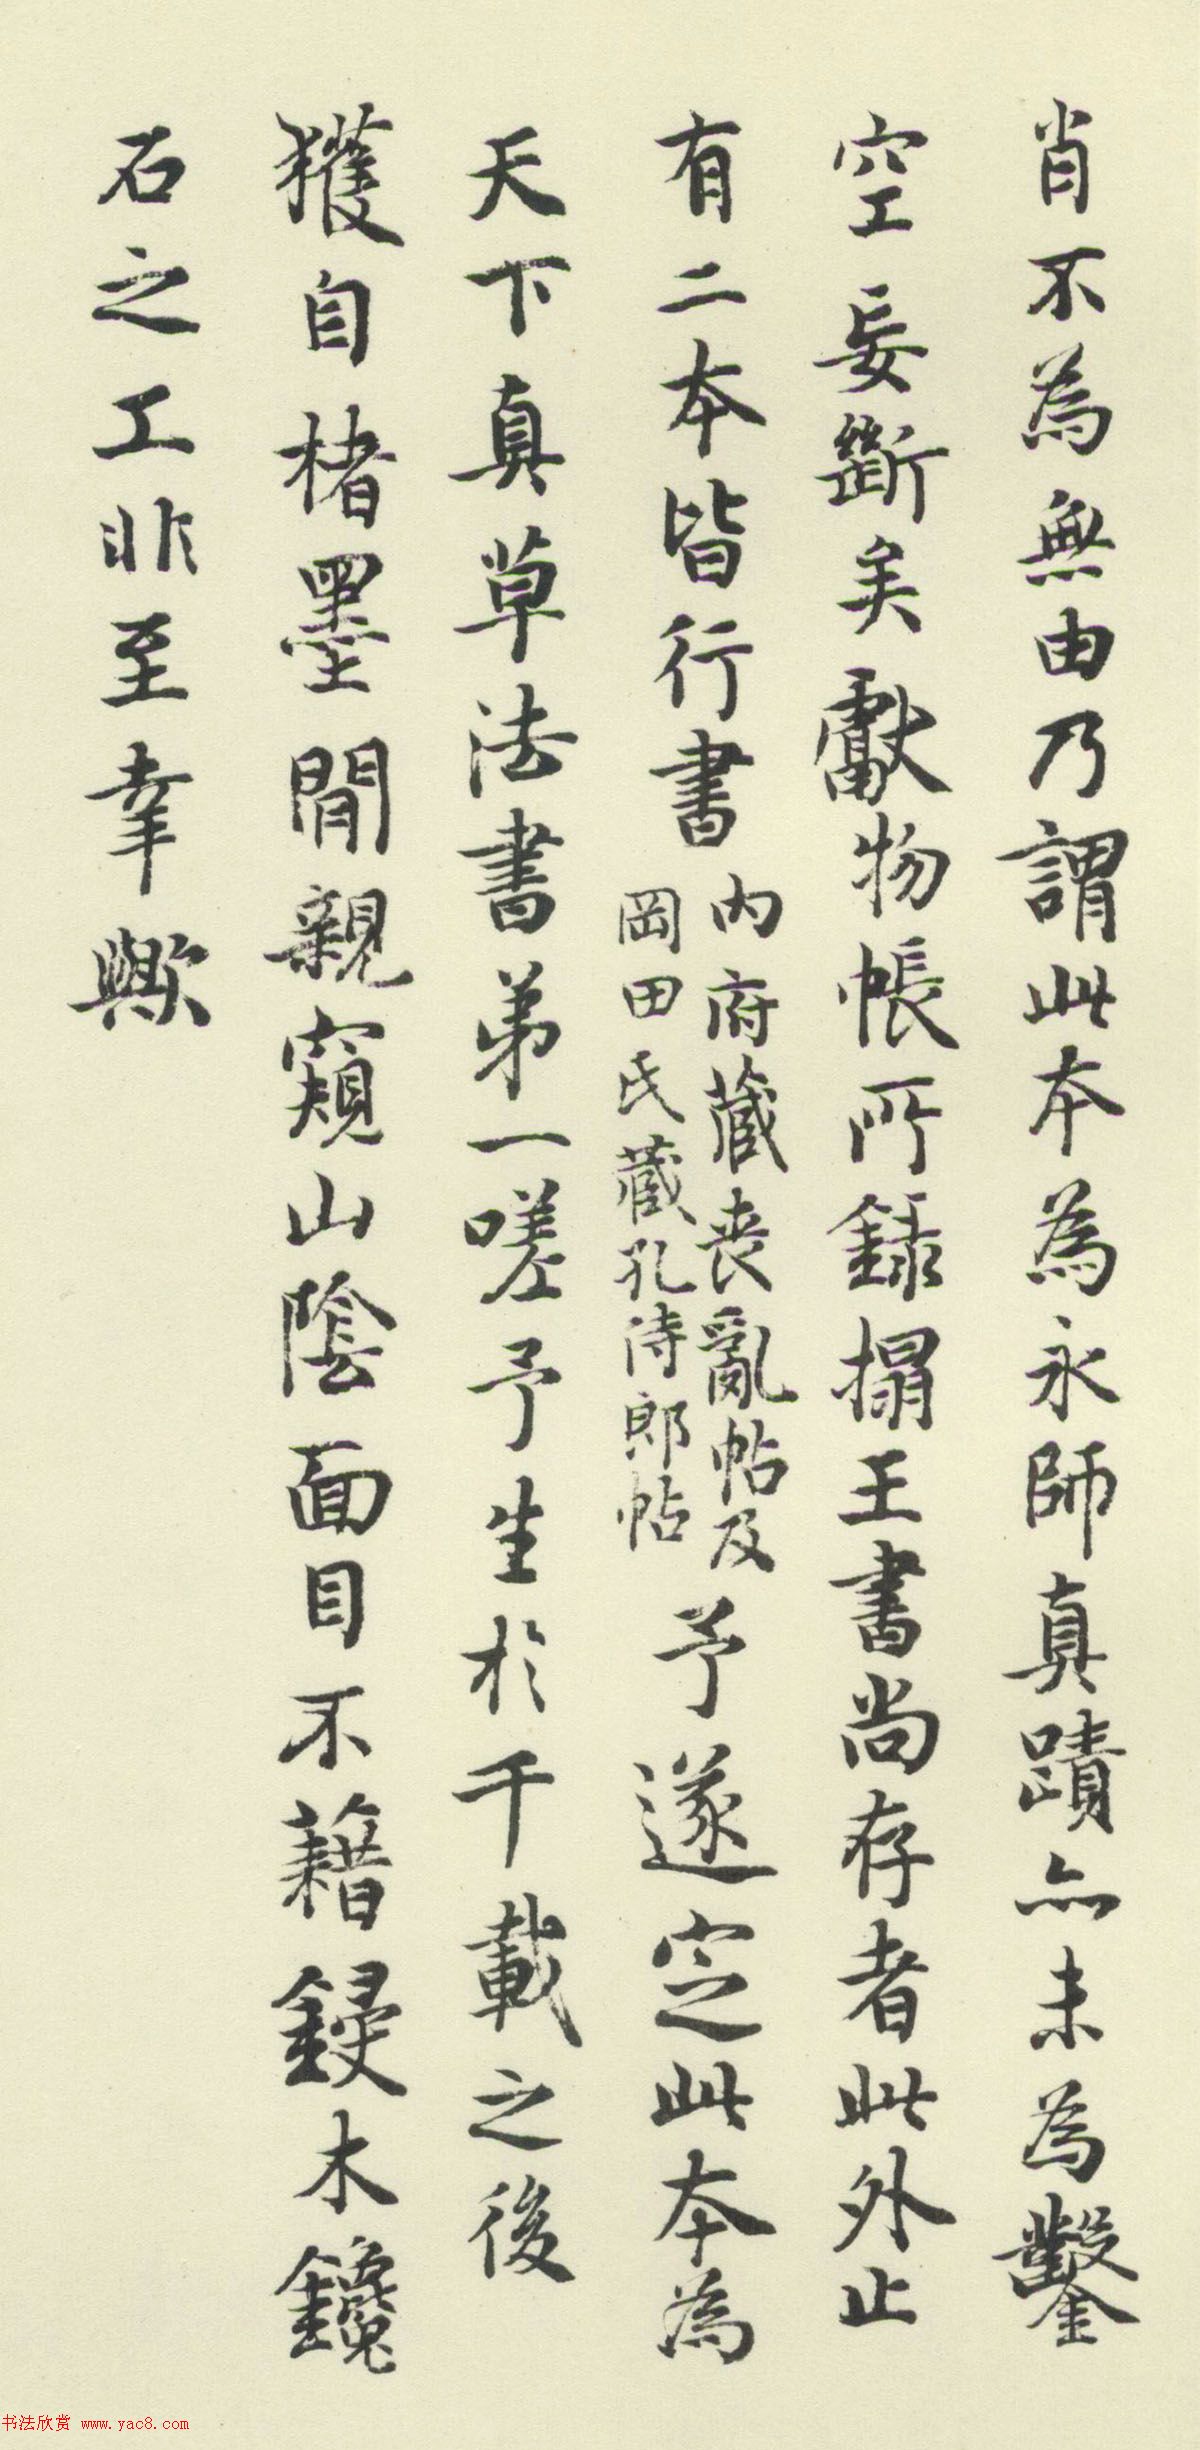 肖不為無由乃謂此本為永師真蹟亦未為鑿
空妄斷矣獻物帳所錄搨王書尚存者此外止
有二本皆行書
內府藏喪亂帖及
岡田氏藏孔侍郎帖
予遂定此本為
天下真草法書弟一嗟予生於千載之後
獲自楮墨間親窺山陰面目不藉鋟木鑱
石之工非至幸歟
书法欣赏 www.yac8.com